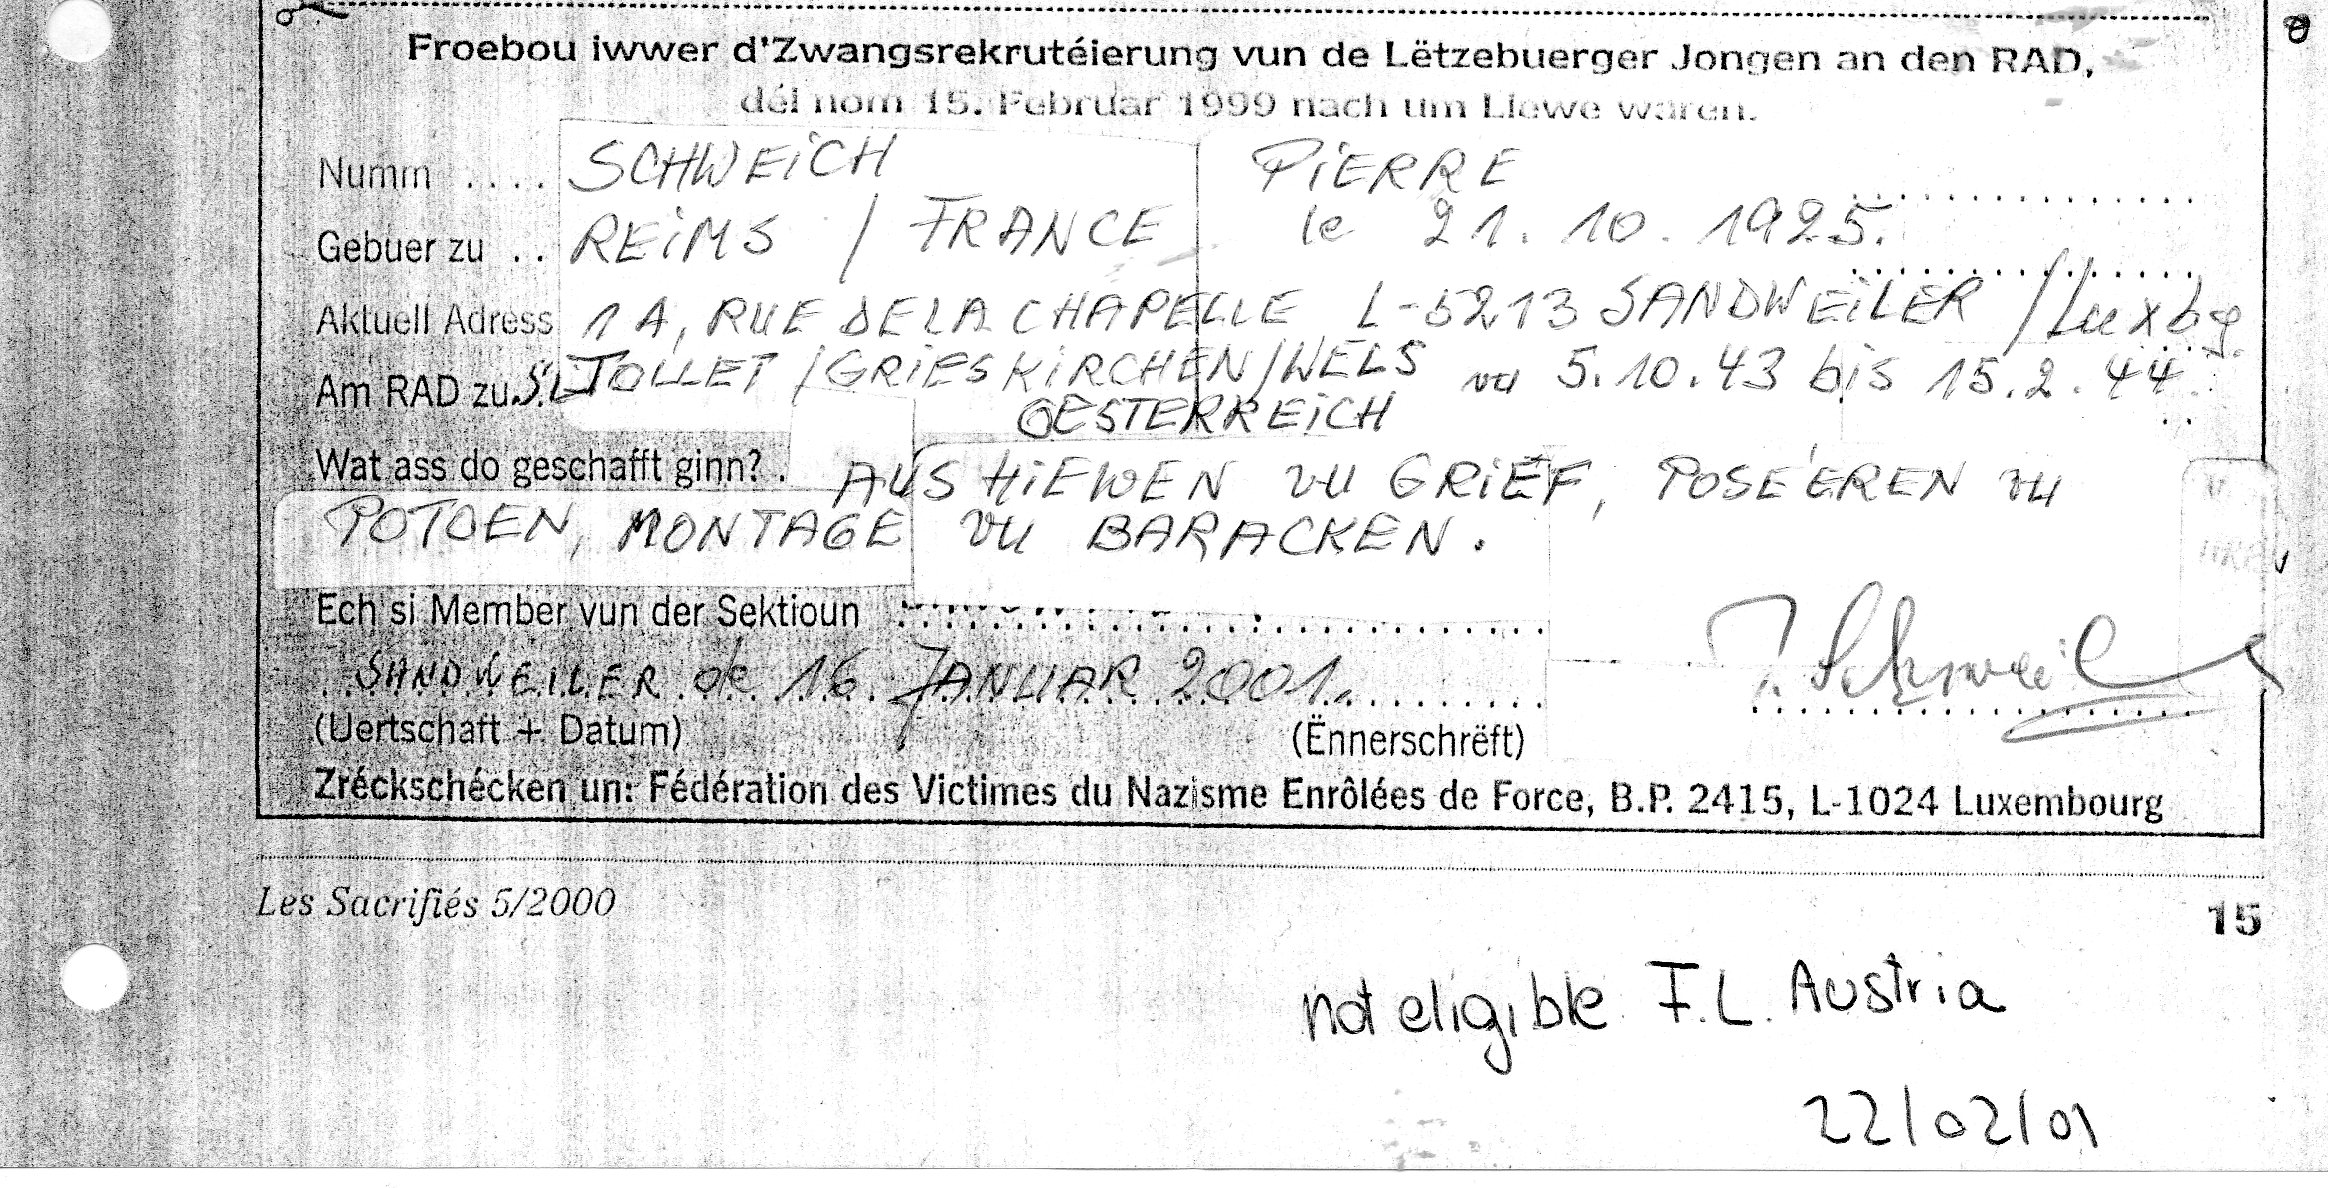 Froebou iwwer d'Zwangsrekrutéierung vun de Lëtzebuerger Jongen an den RAD,
déi nom 15. Februar 1999 nach um Liewe waren.
Numm .... SCHWEICH PIERRE
Gebuer zu .. REIMS / FRANCE le 21. 10. 1925.
Aktuell Adress 1A, RUE DE LA CHAPELLE L-5213 SANDWEILER / Luxbg.
Am RAD zu TOLLET / GRIESKIRCHEN / WELS vu 5.10.43 bis 15.2.44
OESTERREICH
Wat ass do geschafft ginn? . AUSHIEWEN VU GRIEF, POSÉEREN VU
POTOEN, MONTAGE VU BARACKEN.
Ech si Member vun der Sektioun
SANDWEILER de 16. JANUAR 2001. P. Schweich
(Uertschaft + Datum) (Ënnerschrëft)
Zréckschécken un: Fédération des Victimes du Nazisme Enrôlées de Force, B.P. 2415, L-1024 Luxembourg
Les Sacrifiés 5/2000 15
not eligible F.L. Austria
22/02/01